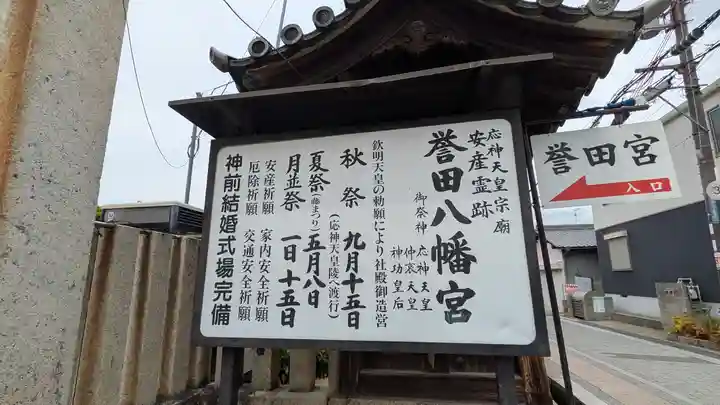 応神天皇宗廟
安産霊跡
誉田八幡宮
御祭神 応神天皇
仲哀天皇
神功皇后
欽明天皇の勅願により社殿御造営
秋祭 九月十五日
(応神天皇陵へ渡行)
夏祭(藤まつり)五月八日
月並祭 一日十五日
安産祈願 家内安全祈願
厄除祈願 交通安全祈願
神前結婚式場完備
誉田宮
入口